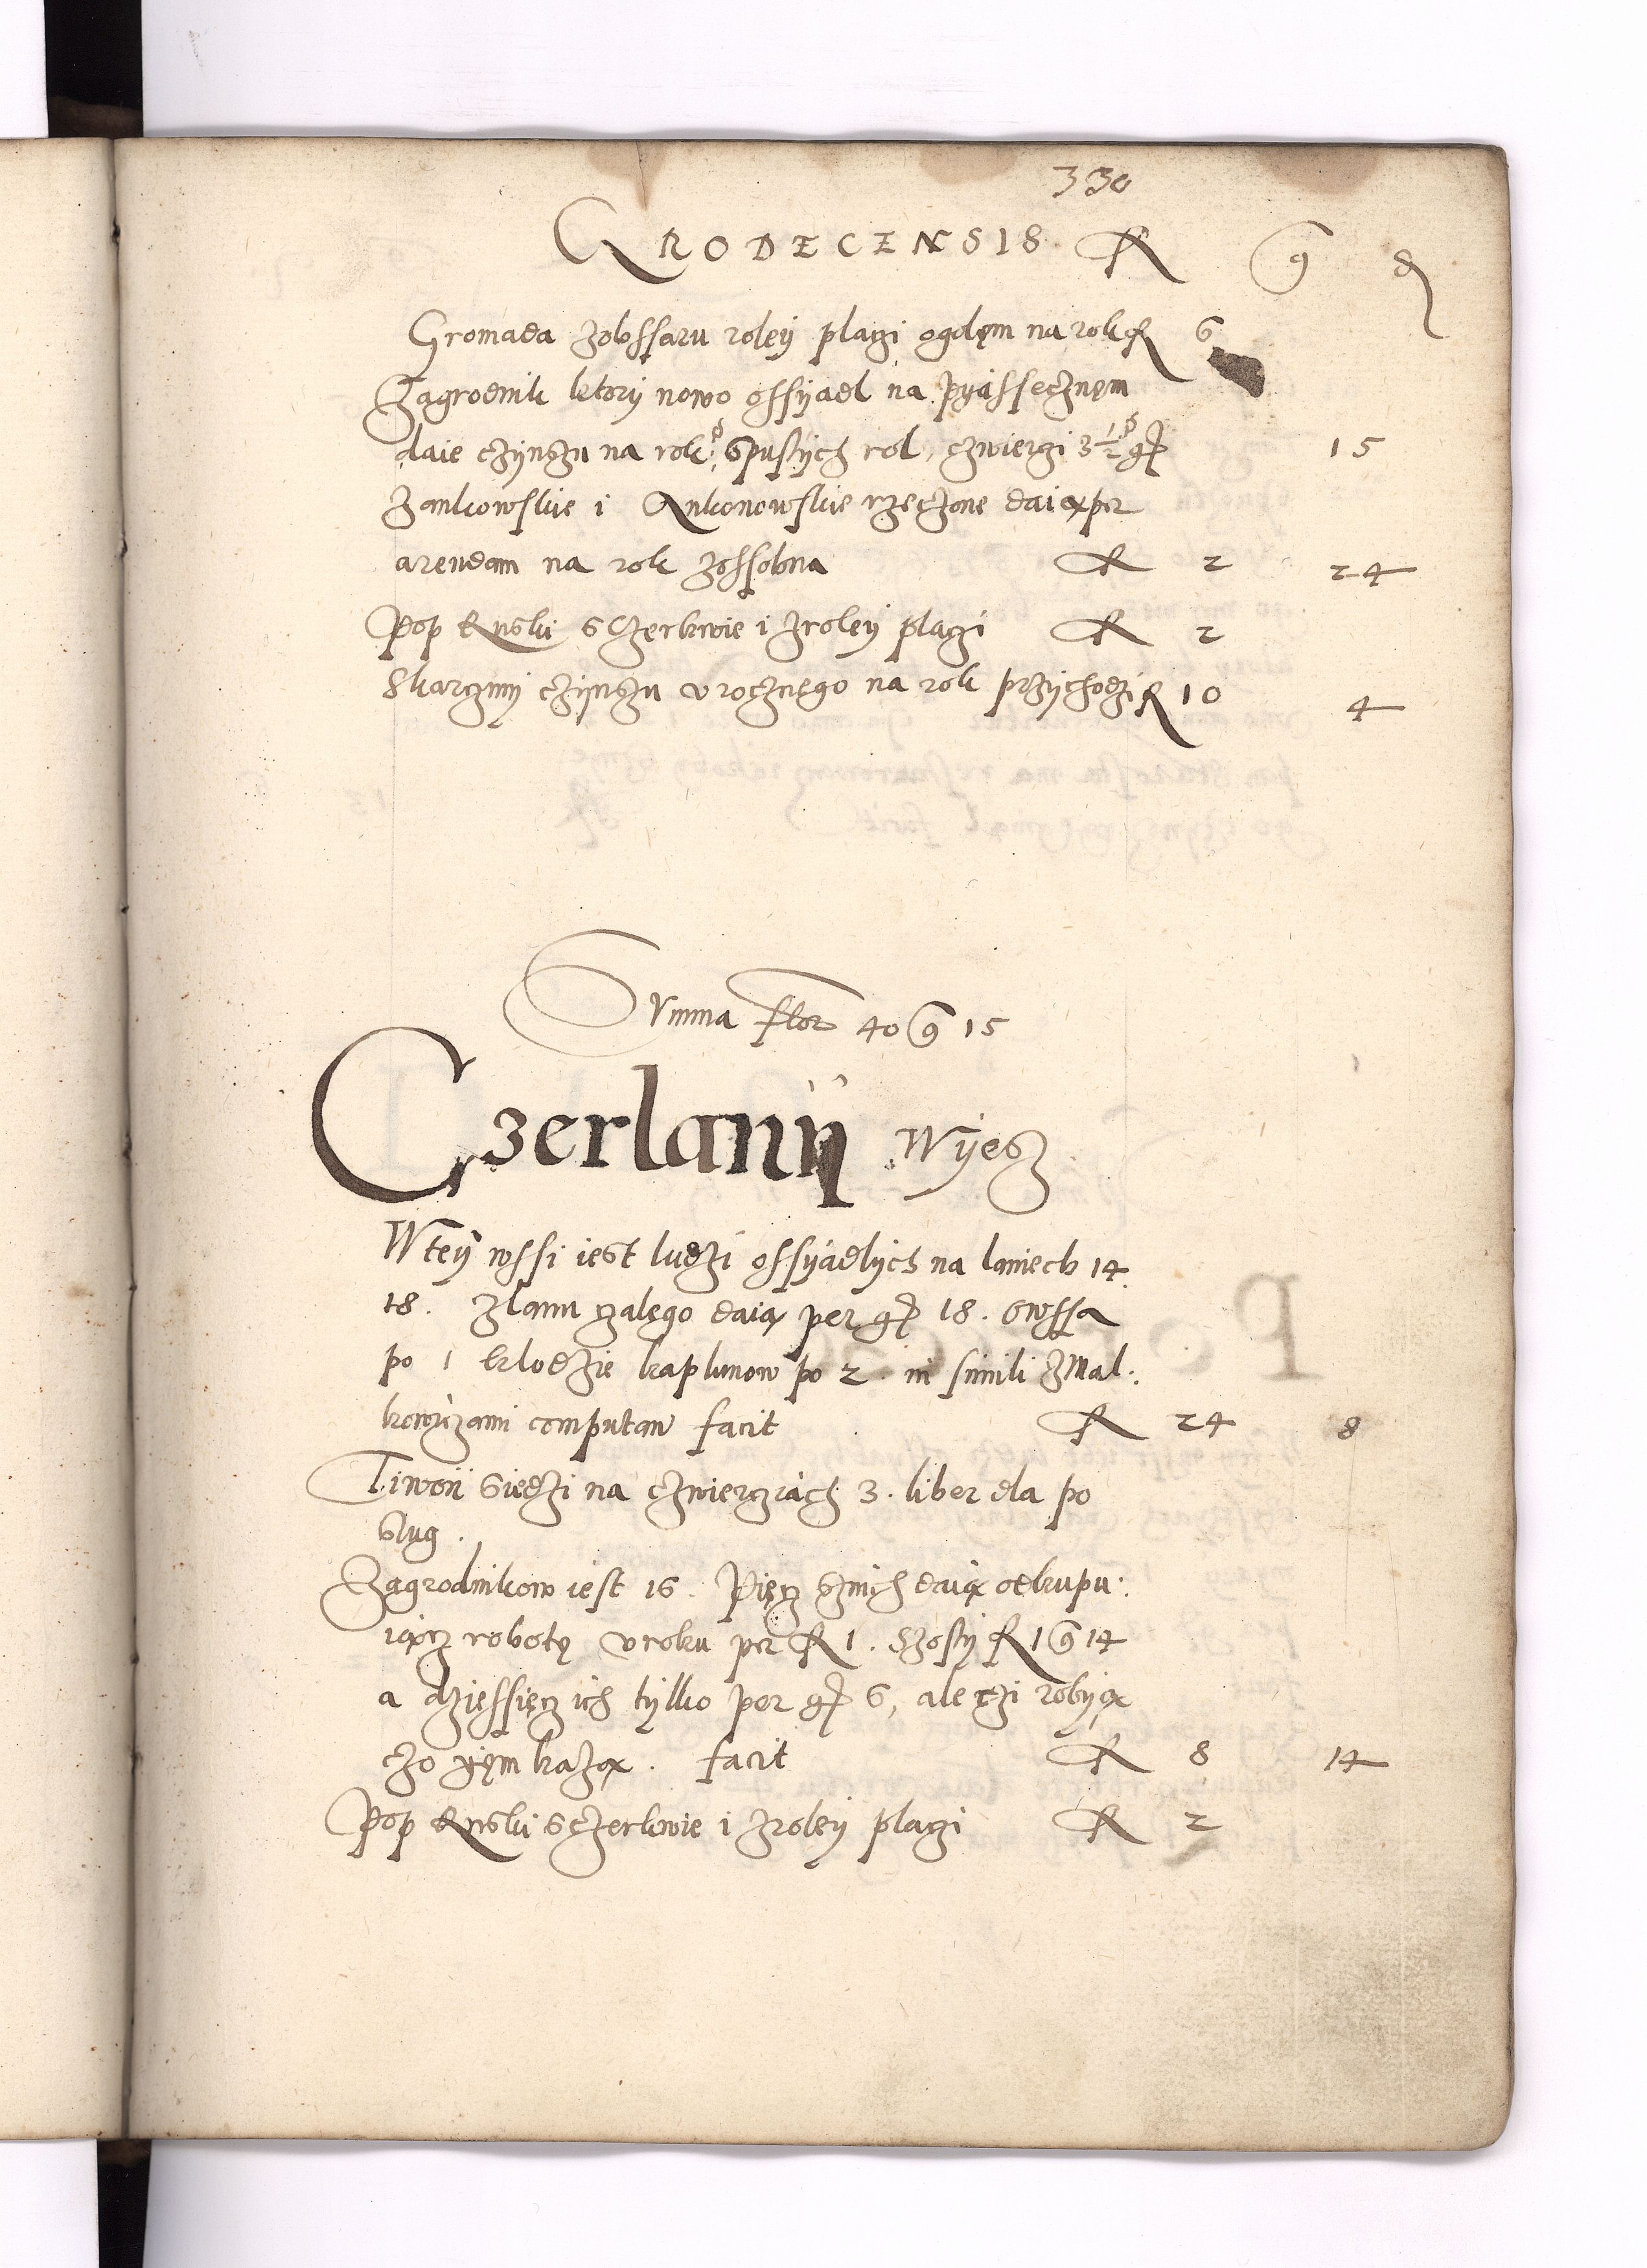 330
GRODECENSIS fl g d
Gromada zobssaru roley placzi ogolęm na rok fl 6
Zagrodnik ktory nowo ossyadl na Pyassecznęm
daie czynszu na rok, s pustych rol, czwierczi 3 1/2 gr 15
Zankowskie i rzeczone daią per
arendam na rok zossobna fl 2 24
Pop Ruski s Czerkwie i z roley placzi fl 2
S karczmy czynszu urocznego na rok przychodzi fl 10 4
Summa flor 40 g 15
Czerlany Wyesz
W tey wssi iest ludzi ossyadlych na laniech 14
18. Z lanu czalego daią per gr 18. owssa
po 1 klodzie kaplunow po 2 in simili z Mal:
kowiczami computan facit fl 24 8
Tiwon siedzi na czwierciach 3. liber dla po
slug.
Zagrodnikow iest 16. Pięcz s nich daią odkupu:
iącz robotę u roku per fl 1. szosty fl 1 g 14
a dziessięcz ich tylko per gr 6, ale czi robyą
czo gęm kazą. facit fl 8 14
Pop Ruski s Czerkwie i z roley placzi fl 2